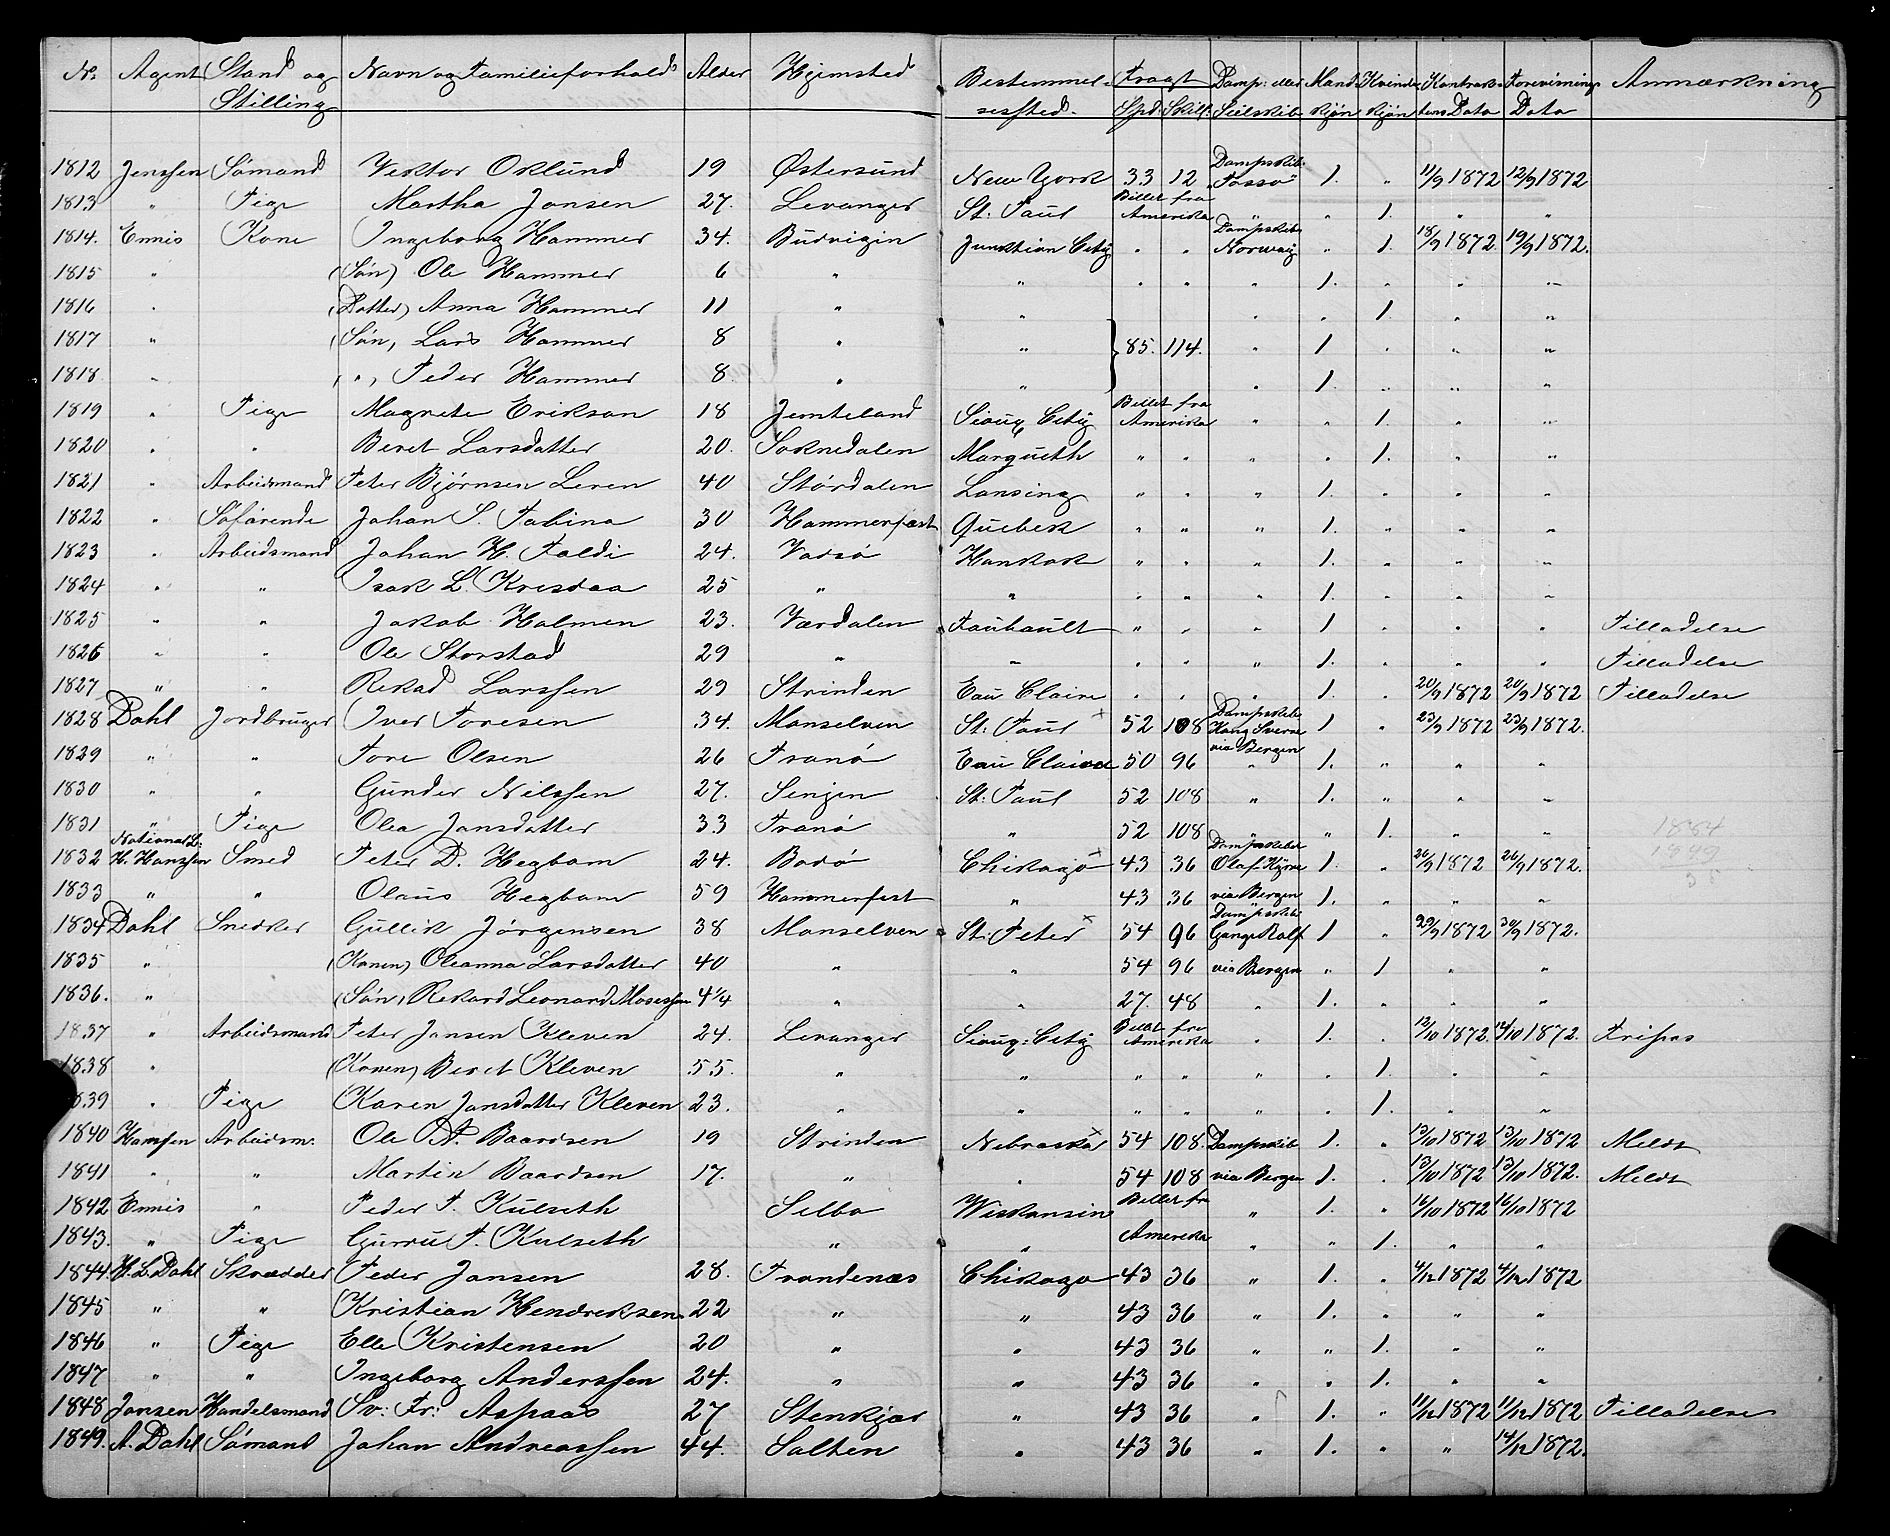 No. Agent Stand og Stilling Navn og Familieforhold Alder Hjemsted Bestemmelsessted. Fragt Spd: Skill: Damp: eller Seilskib Mand kjøn Kvinde kjøn Kontraktens Data Forevisnings Data Anmærkning
1812 Jenssen Sømand Vektor Oklund 19 Østersund New York 33 12 Dampskib. "Tasso" 1. " 11/9 1872 12/9 1872
1813 " Pige Martha Jonsen 27. Levanger St: Paul Billet fra Amerika " " 1. " "
1814. Ennis Kone Ingeborg Hammer 34. Budvigin Junktion City " " Dampskib Norway " 1. 18/9 1872. 19/9 1872.
1815 " (Søn) Ole Hammer 6 " " " " " 1. " " "
1816 " (Datter) Anna Hammer 11 " " " " 1. " "
1817 " (Søn, Lars Hammer 8 " " } 85. 114. " 1 " " "
1818. " ( ", Peder Hammer 8. " " " 1. " " "
1819 " Pige Magrete Erikson 18 Jemteland Sioux City Billet fra Amerika " " 1. " "
1820 " " Beret Larsdatter 20. Soknedalen Margueth " " " " 1. " "
1821 " Arbeidsmand Peter Bjørnsen Leren 40 Størdalen Lansing " " " 1. " " "
1822 " Søfarende Johan S. Tabina 30 Hammerfest Quebek " " " 1. " " "
1823 " Arbeidsmand Johan H. Taldi 24. Vadsø Hankok " " " 1. " " "
1824 " " Isak L. Kresdaa 25 " " " " " 1. " " "
1825 " " Jakob Holmen 23. Værdalen Faubault " " " 1 " " " Tilladelse
1826 " " Ole Storstad 29 " " " " " 1. " " " Tilladelse
1827 " " Rikad Larssen 29 Strinden Eau Claire " " " 1. " 20/9 1872 20/9 1872 Tilladelse
1828 Dahl Jordbruger Iver Toresen 34. Manselven St: Paul x 52 108 Dampskib Kong Sverre via Bergen 1 " 23/9 1872 23/9 1872.
1829 " " Tore Olsen 26 Tranø Eau Claire 50 96 " 1. " " "
1830 " " Gunder Nilssen 27. Senjen St: Paul 52 108 " 1. " " "
1831 " Pige Olea Jonsdatter 33 Tranø " 52 108 " " 1. " " 1884
1832 National L: H. Hanssen Smed Peter D. Hegbom 24. Bodø Chikago x 43 36 Dampskib Olaf Kyrre 1. " 26/9 1872 26/9 1872. 1849
1833 " " Olaus Hegbom 59 Hammerfest " 43 36 via Bergen 1. " " " 35
1834 Dahl Snedker Gullik Jørgensen 38 Manselven St: Peter x 54 96 Dampskib Gange Rolf 1 " 29/9 1872 30/9 1872.
1835 " (Konen) Oleanna Larsdatter 40 " " 54 96 via Bergen " 1 " "
1836. " (Søn, Rekard Leonard Mosessen 4 1/4 " " 27. 48 " 1. " " "
1837 " Arbeidsmand Peter Jansen Kleven 24. Levanger Sioux: City Billet fra Amerika 1. " 12/10 1872. 12/10 1872. Fripas
1838 " (Konen) Beret Kleven 55. " " " " " " 1. " "
1839 " Pige Karen Jonsdatter Kleven 23. " " " " " " 1. " "
1840 Hanssen Arbeidsm: Ole A. Baardsen 19 Strinden Nebraska x 54 108. Dampskib 1. " 13/10 1872 13/10 1872 Meldt
1841 " " Martin Baardsen 17. " " 54 108 via Bergen 1. " 13/10 1872 13/10 1872. Meldt
1842 Ennis " Peder P. Kulseth Selbo Wiskonsin Billet fra Amerika " 1. " 16/10 1872 16/10 1872
1843. " Pige Gurru P. Kulseth " " " " 1. " "
1844. H. L. Dahl Skrædder Peder Jansen 28. Trondenæs Chikago 43 36 " 1. " 4/12 1872 4/12 1872
1845 " " Kristian Hendreksen 22 " " 43 36 " 1. " " "
1846 " Pige Elle Kristensen 20 " " 43 36 " " 1. " "
1847 " " Ingeborg Anderssen 24. " " 43 36 " " 1. " "
1848 Jansen Handelsmand Sv: Fr: Aspaas 27 Stenkjær " 43 36 " 1. " 11/12 1872 11/12 1872 Tilladelse
1849. A. Dahl Sømand Johan Andreassen 44. Salten " 43 36 " 1. " " 14/12 1872.